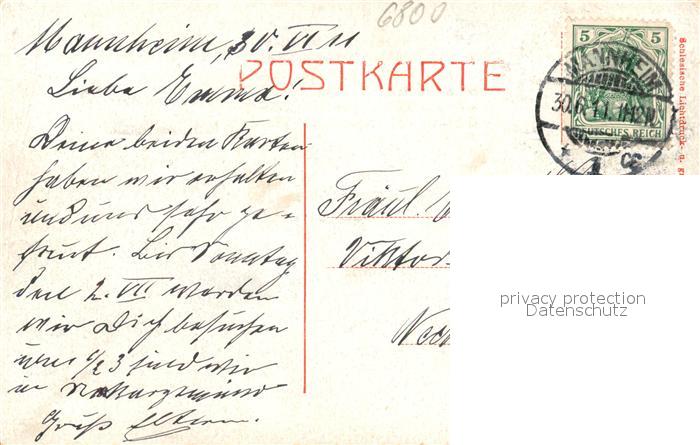 6800
Mannheim, 30. VI 11
POSTKARTE
Liebe Emma!
Deine beiden Karten
haben wir erhalten
und uns sehr ge-
freut. Bis Sonntag
den 2. VII werden
wir Dich besuchen
um 1/2 3 sind wir
in Neckargemünd
Gruß Eltern.
5 5
DEUTSCHES REICH
MANNHEIM
30.6.11.
Schlesische Lichtdruck- u.
Fräul.
Viktor
privacy protection
Datenschutz